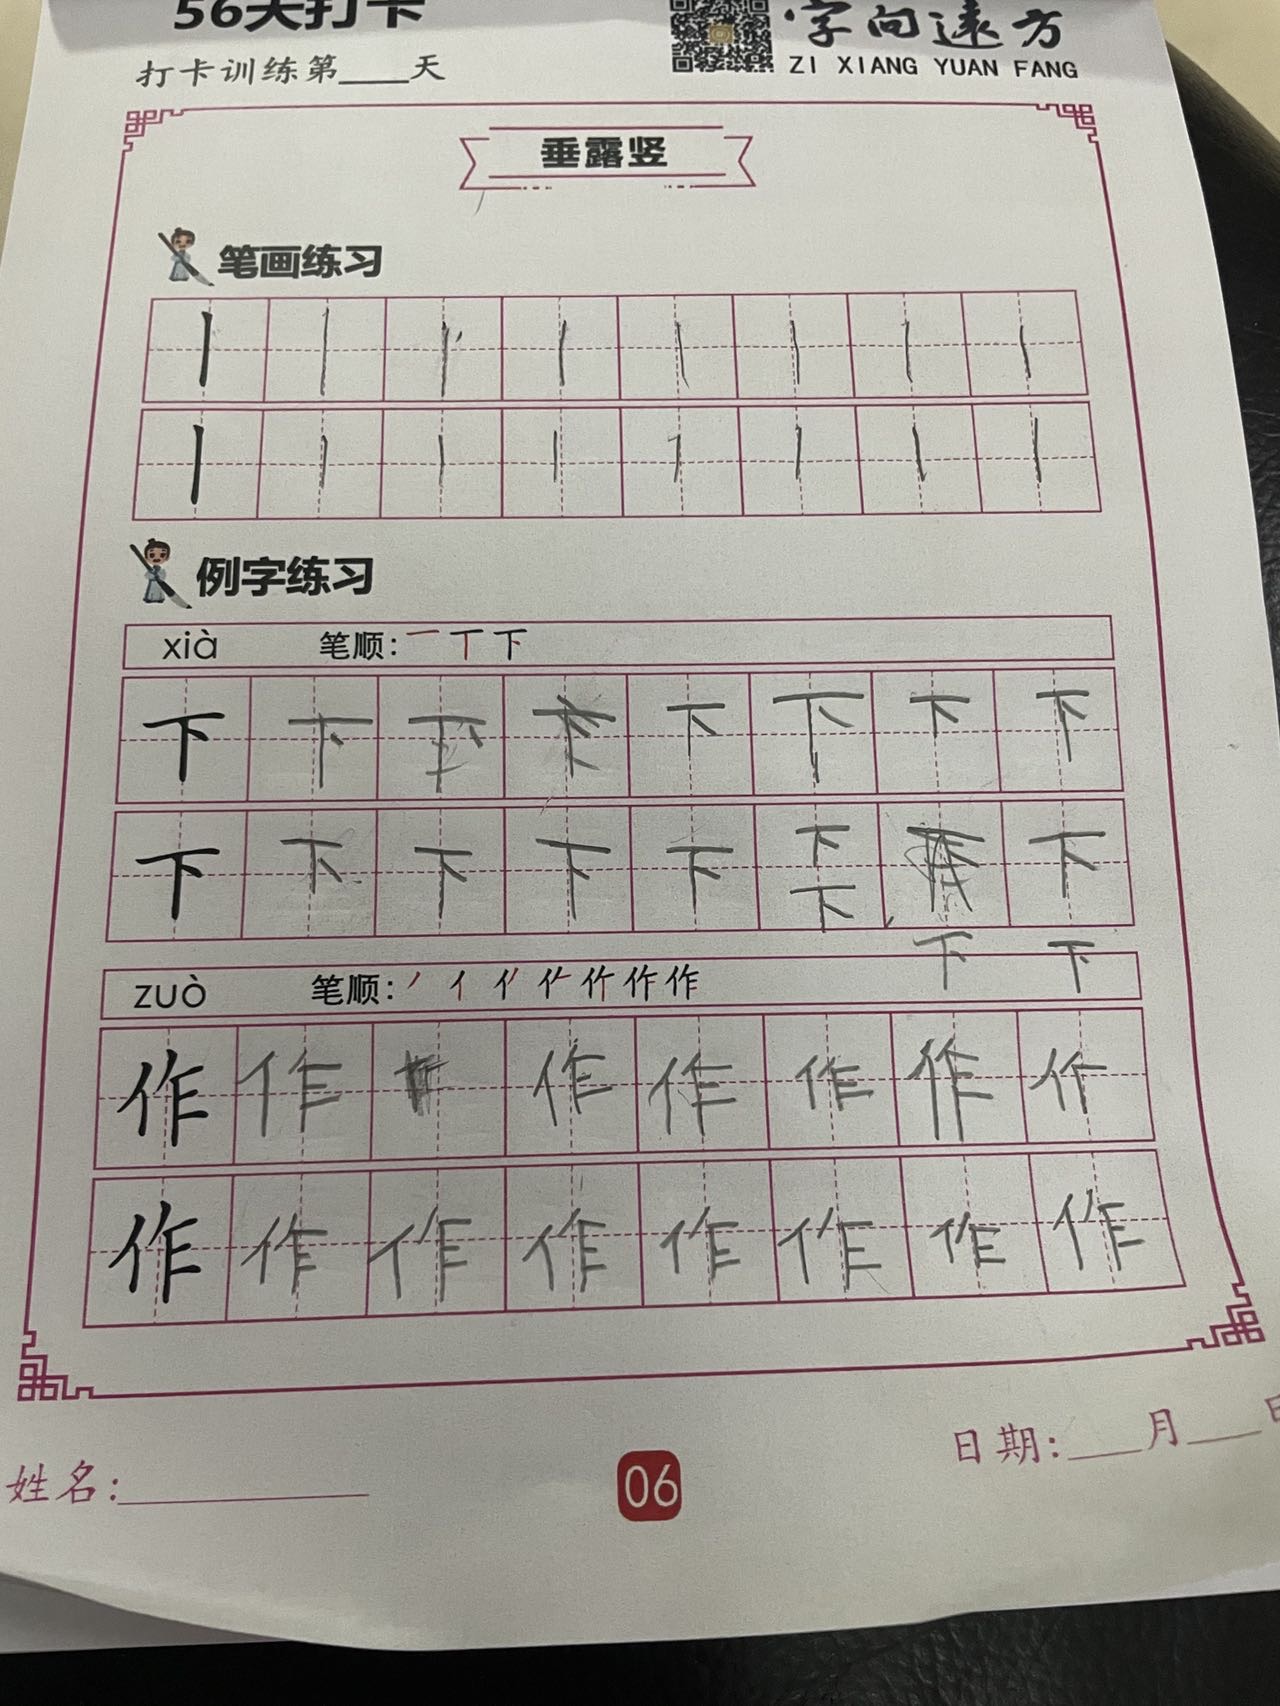 56天打卡
字向远方
打卡训练第____天
ZI XIANG YUAN FANG
垂露竖
笔画练习
丨丨丨丨丨丨丨丨
丨丨丨丨丨丨丨丨
例字练习
xià 笔顺: 一 丅 下
下 下 下 下 下 下 下
下 下 下 下 下 下 下
下
下 下
zuò 笔顺: 丿 亻 亻 作 作
作 作 作 作 作 作 作
作 作 作 作 作 作 作 作
姓名:
06
日期:___月___日